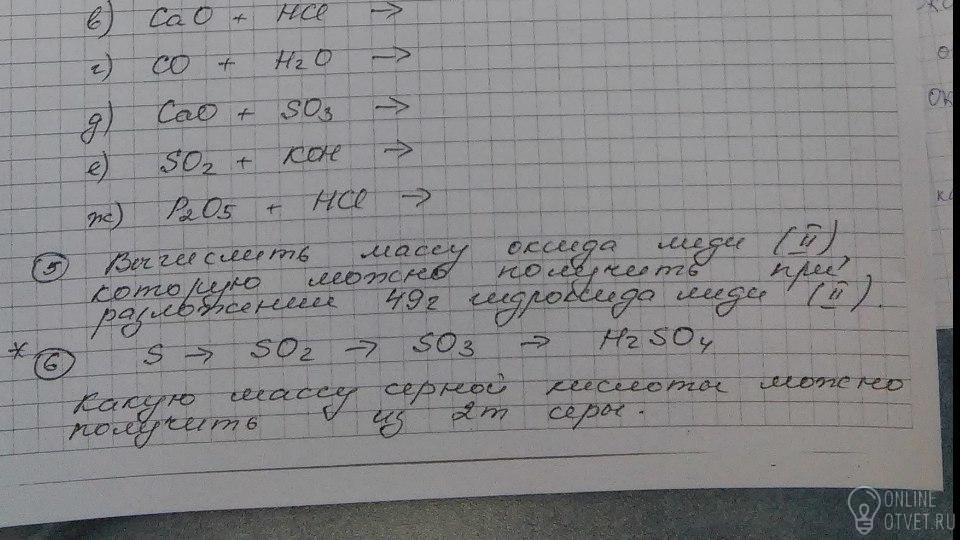 в) CaO + HCl →
г) CO + H2O →
д) CaO + SO3 →
е) SO2 + KOH →
ж) P2O5 + HCl →
5 Вычислить массу оксида меди (II)
которую можно получить при
разложении 49г гидроксида меди (II).
* 6 S → SO2 → SO3 → H2SO4
Какую массу серной кислоты можно
получить из 2т серы.
ONLINE
OTVET.RU